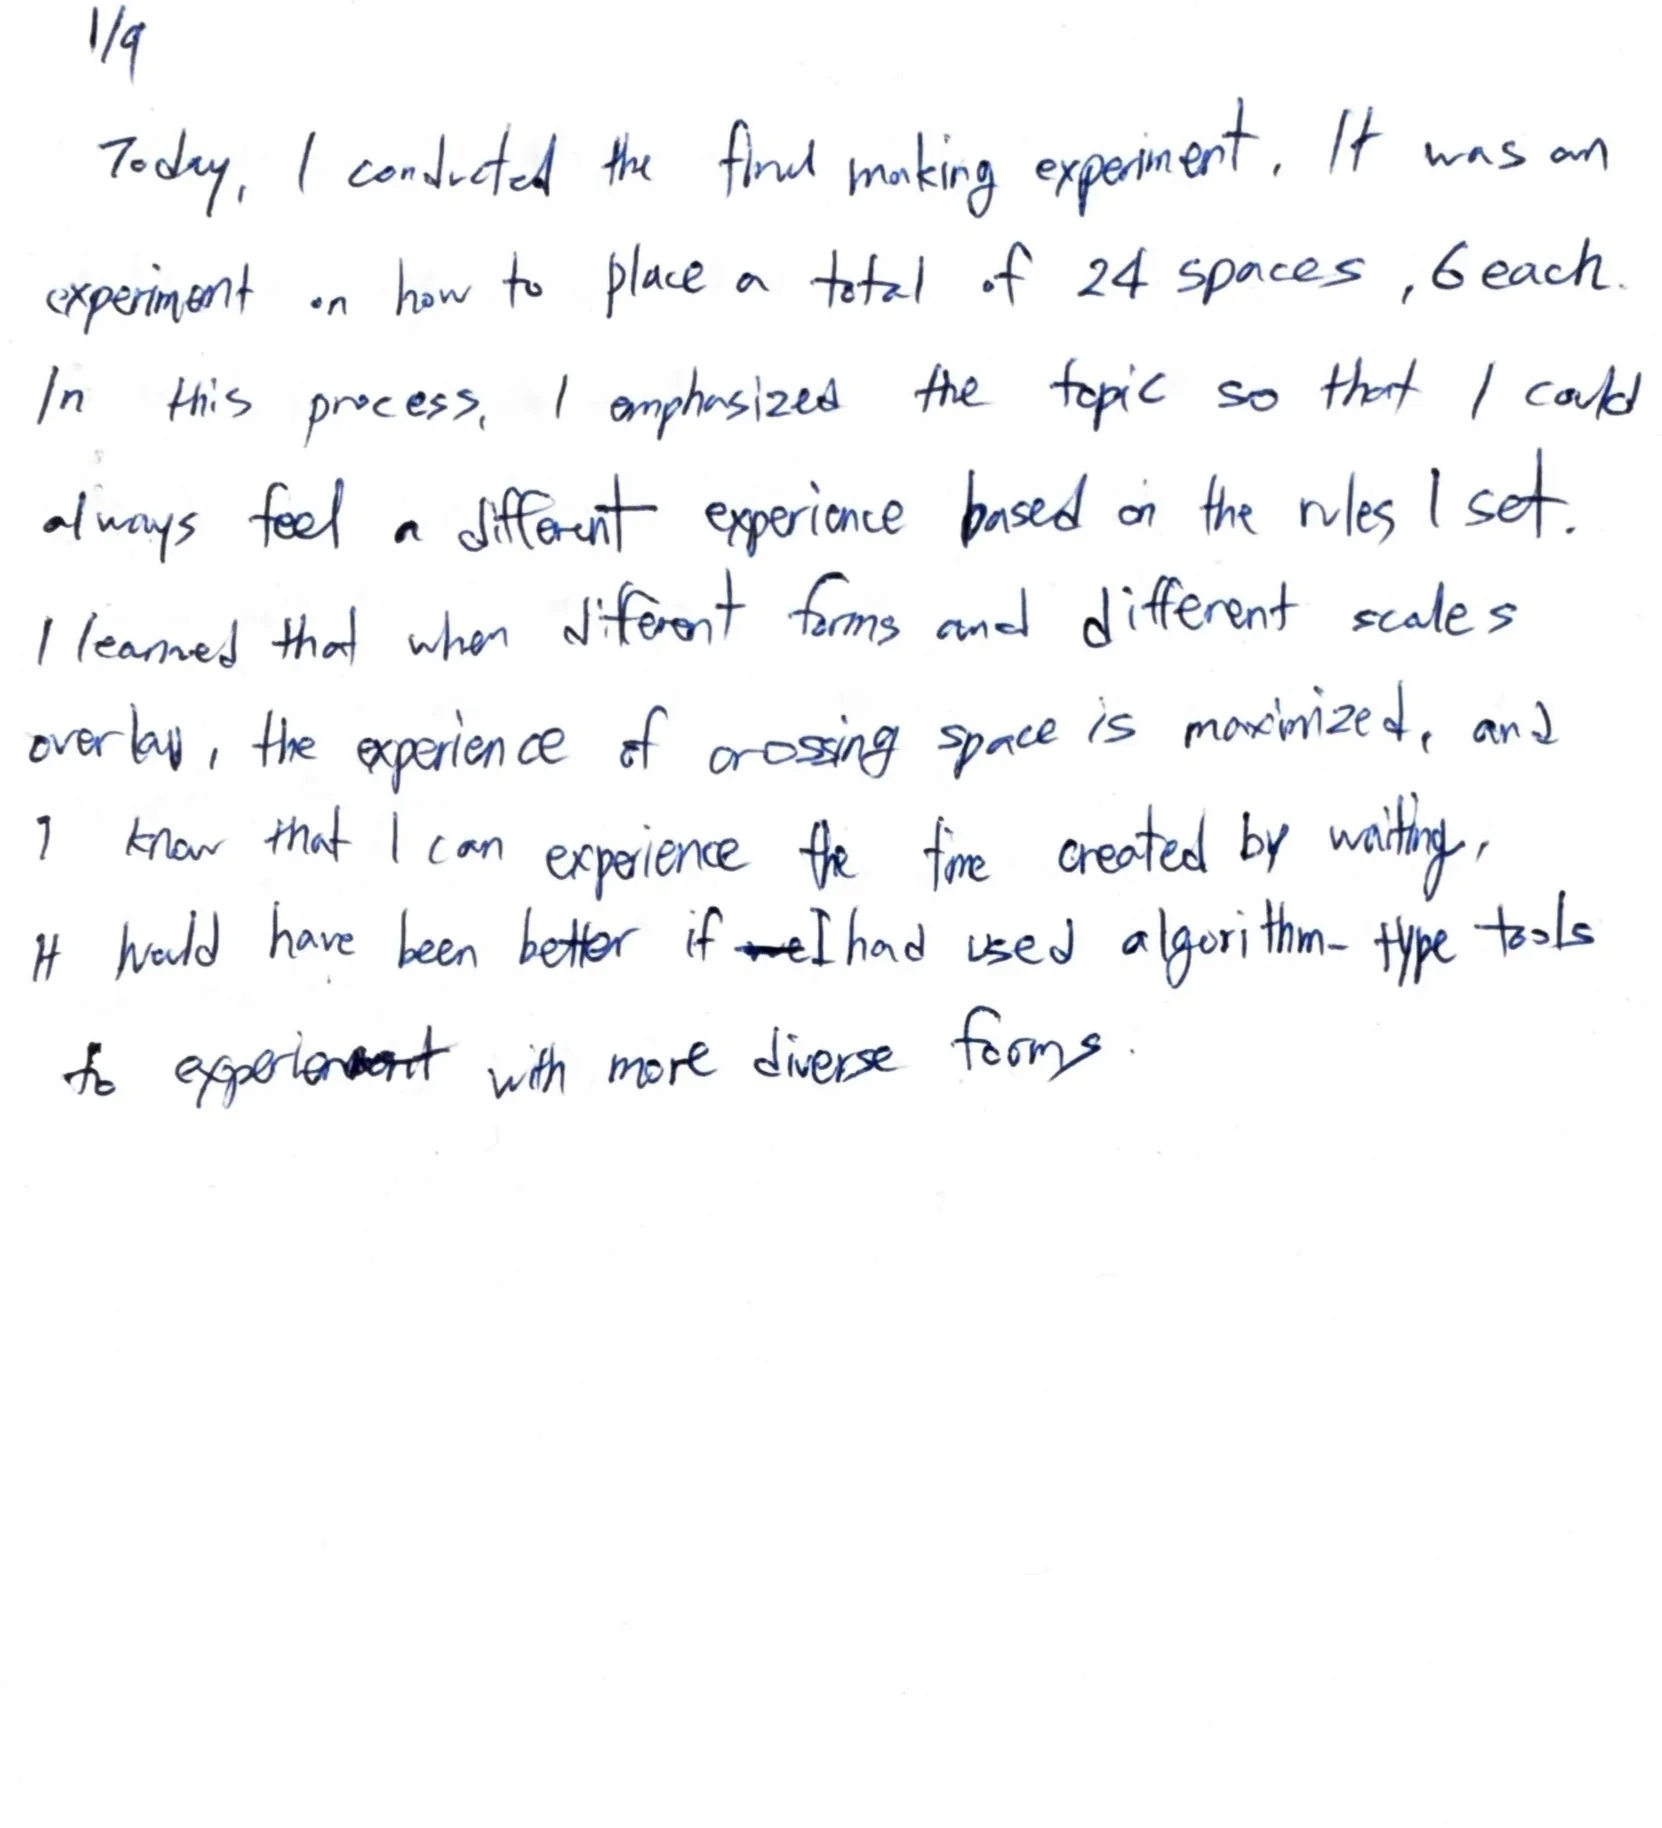 1/9
Today, I conducted the final making experiment. It was an
experiment on how to place a total of 24 spaces, 6 each.
In this process, I emphasized the topic so that I could
always feel a different experience based on the rules I set.
I learned that when different forms and different scales
overlap, the experience of crossing space is maximized, and
I know that I can experience the time created by waiting,
It would have been better if I had used algorithm-type tools
to experiment with more diverse forms.